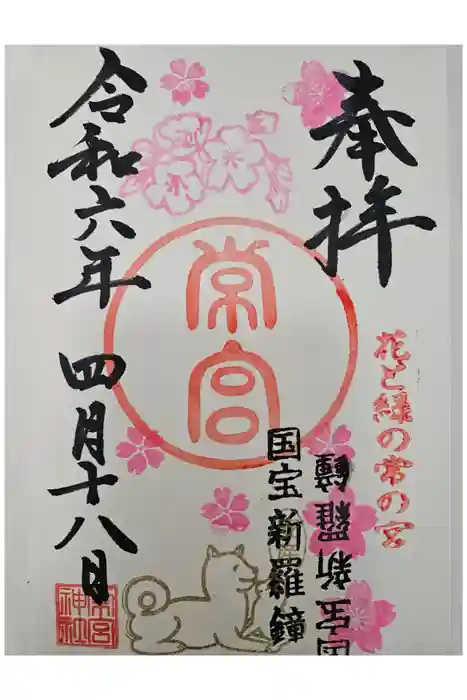 奉拝
花と緑の常の宮
常宮
国宝新羅鐘
国宝新羅鐘
令和六年 四月十八日
常宮神社